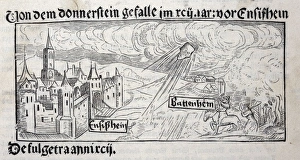 Von dem donnerstein gefalle im xcij. iar: vor Ensißhein
Battenheim
Ensißhein
De fulgetra anni xcij.